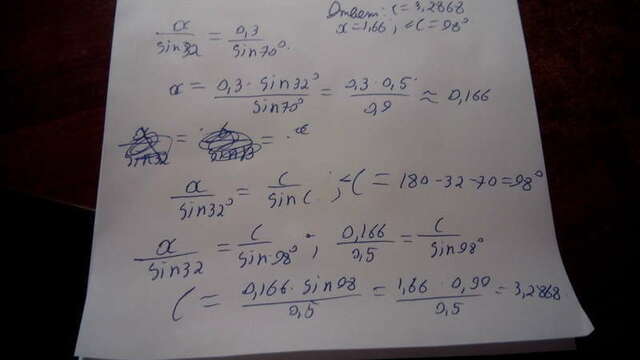 Ответ: C = 3,2868
x = 1,66 ; ∠C = 98°
x/sin32 = 0,3/sin70°
x = 0,3 · sin32°/sin70° = 0,3 · 0,5/0,9 ≈ 0,166
x/sin32° = C/sin C ; ∠C = 180 - 32 - 70 = 98°
x/sin32 = C/sin98° ; 0,166/0,5 = C/sin98°
C = 0,166 · sin98/0,5 = 1,66 · 0,99/0,5 = 3,2868